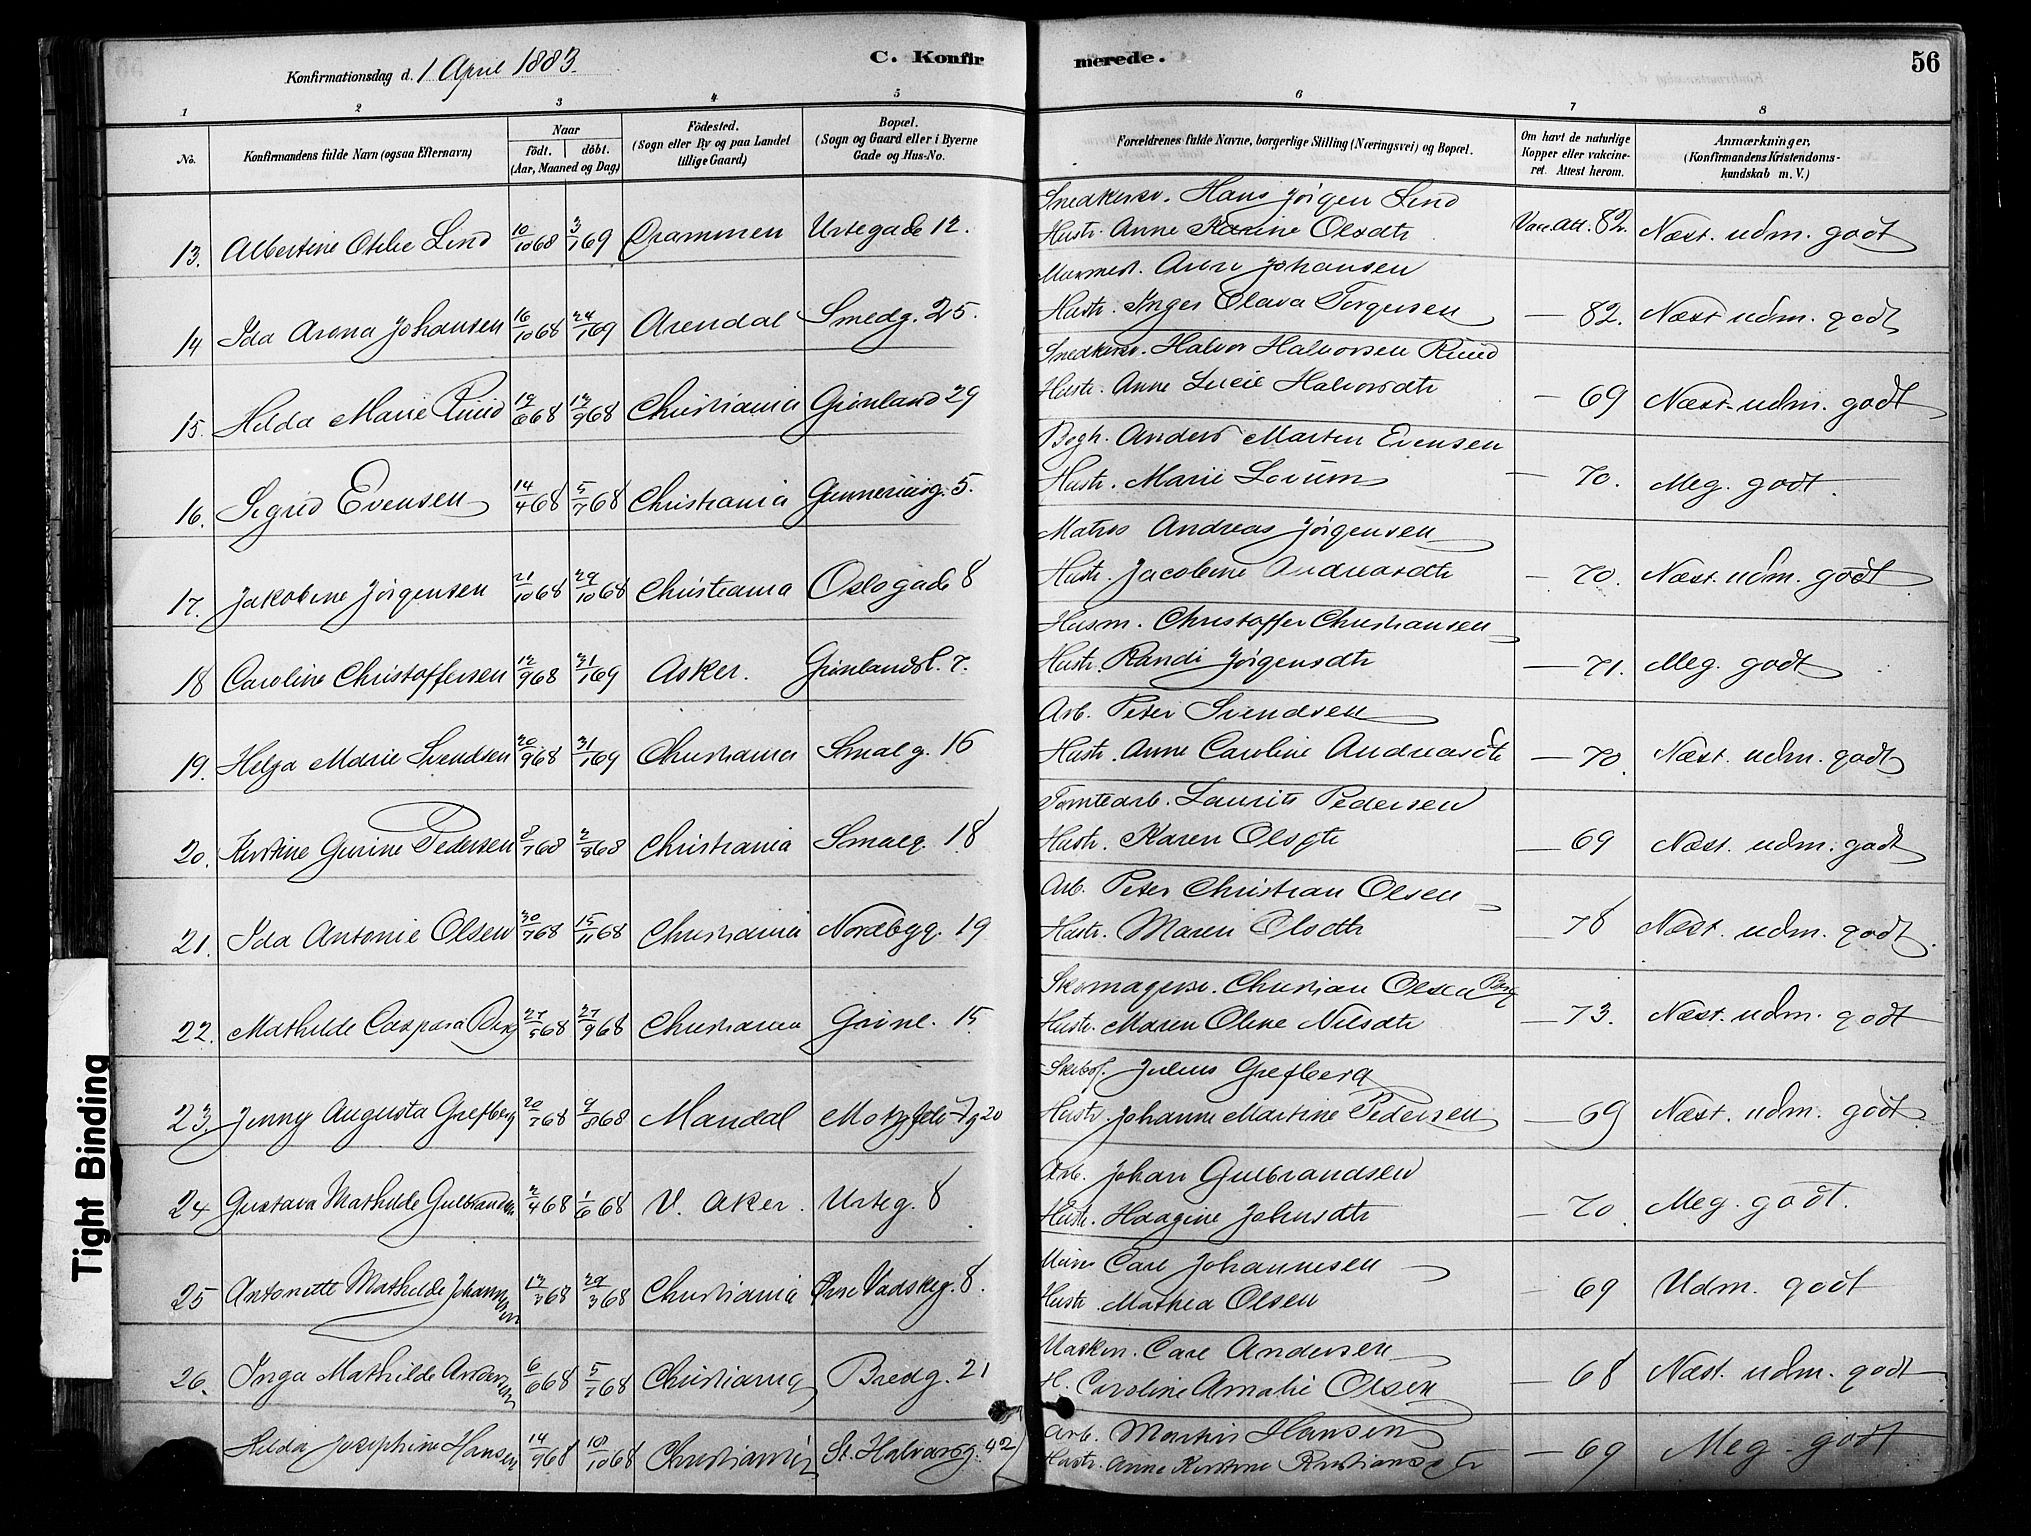 Konfirmationsdag d. 1 April 1883. C. Konfirmerede. 56
1 2 3 4 5 6 7 8
No. Konfirmandens fulde Navn (ogsaa Efternavn) Naar födt. döbt. (Aar, Maaned og Dag) Födested. (Sogn eller By og paa Landet tillige Gaard) Bopæl. (Sogn og Gaard eller i Byerne Gade og Hus-No. Forældrenes fulde Navne, borgerlige Stilling (Næringsvei) og Bopæl. Om havt de naturlige Kopper eller vakcineret. Attest herom. Anmærkninger, (Konfirmandens Kristendomskundskab m. V.)
Snedkersv. Hans Jörgen Lind
13. Albertine Otilie Lind 10/10 68 3/1 69 Drammen Urtegade 12. Hustr. Anne Karine Olsdtr Vacc. att. 82. Næst. udm. godt
Murmest. Aron Johansen
14 Ida Arona Johansen 16/10 68 24/1 69 Arendal Smedg. 25. Hustr. Inger Olava Torgersen — 82. Næst udm. godt
Snedkersv. Halvor Halvorsen Ruud
15. Hilda Marie Ruud 12/6 68 13/9 68 Christiania Grönland 29 Hustr. Anne Lucie Halvorsdtr — 69 Næst. udm. godt
Bogh. Anders Martin Evensen
16. Sigrid Evensen 14/4 68 5/7 68 Christiania Gunneriusg. 5. Hustr. Marie Lorum — 70. Meg. godt.
Matros Andreas Jörgensen
17. Jakobine Jörgensen 21/10 68 29/10 68 Christiania Oslogade 8 Hustr. Jacobine Andreasdtr — 70. Næst. udm. godt
Husm. Christoffer Christiansen
18 Caroline Christoffersen 12/9 68 31/1 69 Asker. Grönlandsl. 7. Hustr. Randi Jörgensdtr — 71. Meg. godt
Arb. Peter Svendsen
19. Helga Marie Svendsen 20/9 68 31/1 69 Christiania Smalg. 16 Hustr. Anne Caroline Andreasdtr — 70. Næst. udm. godt
Tomtearb. Laurits Pedersen
20. Kirstine Gurine Pedersen 8/7 68 2/8 68 Christiania Smalg. 18 Hustr. Karen Olsdtr — 69 Næst. udm. godt
Arb. Peter Christian Olsen
21. Ida Antonie Olsen 30/7 68 15/11 68 Christiania Nordbyg. 19 Hustr. Maren Olsdtr — 78 Næst. udm. godt
Skomagersv. Christian Olsen Berg
22. Mathilde Caspara Berg 27/5 68 27/9 68 Christiania Grönl. 15. Hustr. Maren Oline Nilsdtr — 73. Næst. udm. godt
Skibsf. Julius Grefberg
23. Jenny Augusta Grefberg 20/7 68 9/8 68 Mandal Motzfeldtsg 20 Hustr. Johanne Martine Pedersen — 69 Næst. udm. godt.
Arb. Johan Gulbrandsen
24 Gustava Mathilde Gulbrandsen 2/4 68 1/6 68 V. Aker. Urteg. 8 Hustr. Haagine Johnsdtr — 70. Meg. godt.
Carl Johannesen
25 Antonette Mathilde Johannesen 13/3 68 29/3 68 Christiania Övre Vadskeg. 8. Hustr. Mathea Olsen — 69 Udm. godt
Maskin. Carl Andersen
26. Inga Mathilde Andersen 6/6 68 5/7 68 Christiania Bredg. 21 H. Caroline Amalie Olsen — 68 Næst. udm. godt
Arb. Martin Hansen
Hilda Josephine Hansen 14/9 68 18/10 68 Christiania St. Halvardsg. 42 Hustr. Anne Kirstine Kristiansdtr — 69 Meg. godt
Tight Binding